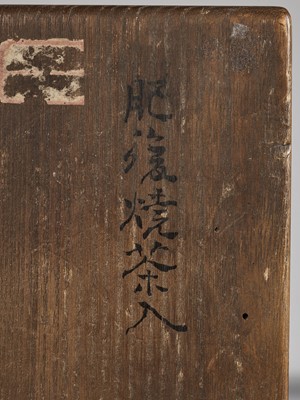 肥後焼茶入